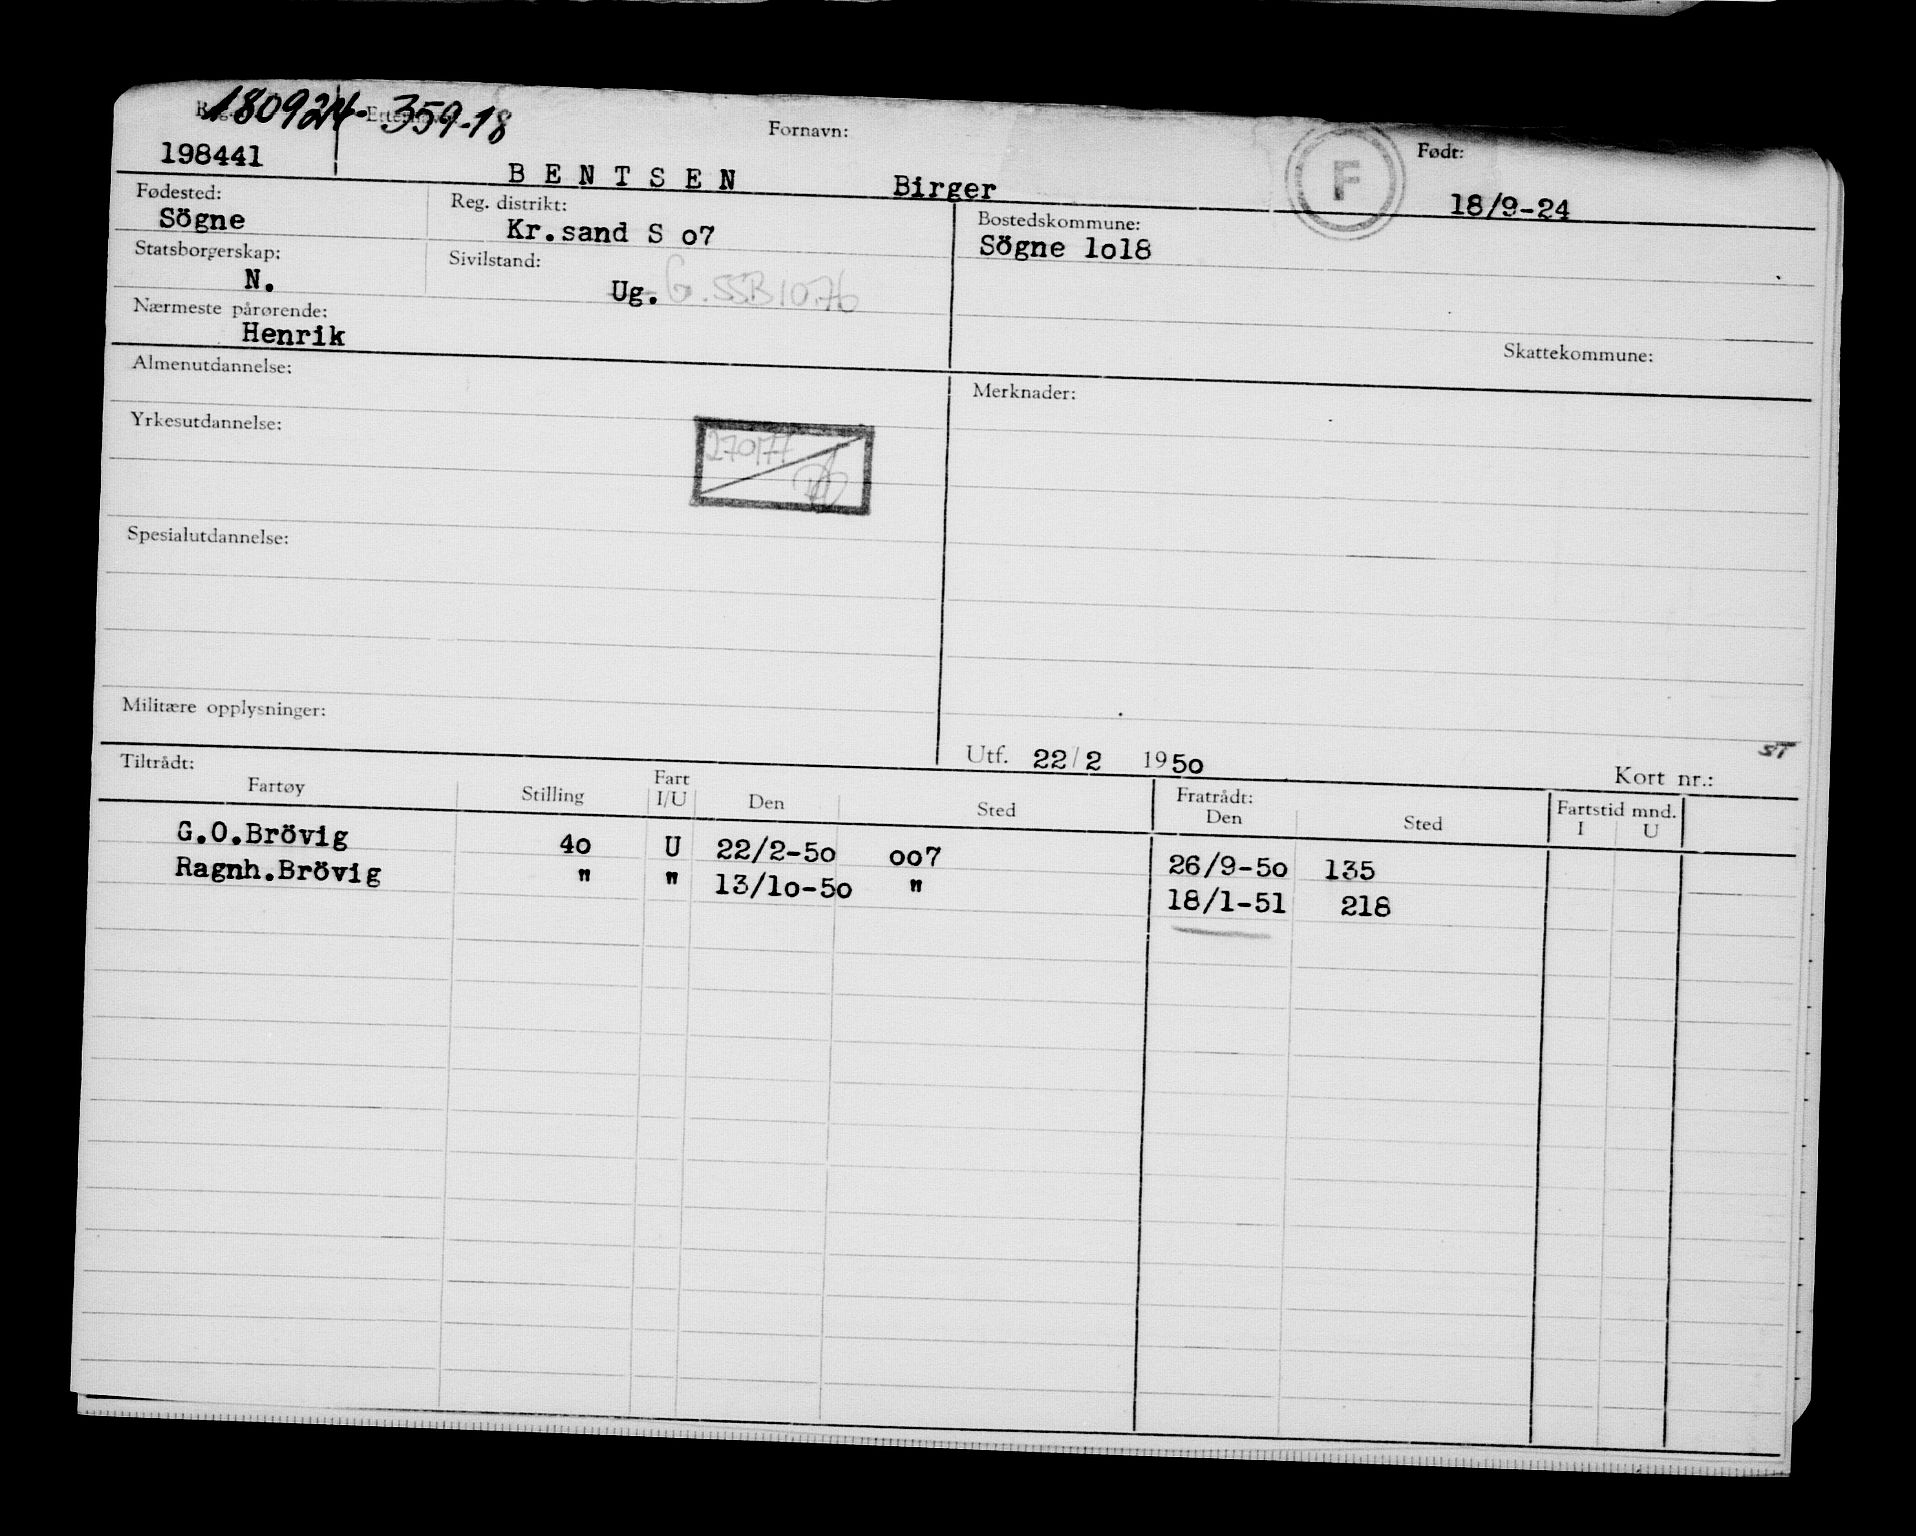 180924-359-18
Fornavn: Født:
198441 BENTSEN Birger F 18/9-24
Fødested: Reg. distrikt: Bostedskommune:
Sögne Kr.sand S o7 Sögne lol8
Statsborgerskap: Sivilstand:
N. Ug. G. SSB1076
Nærmeste pårørende:
Henrik
Skattekommune:
Almenutdannelse: Merknader:
Yrkesutdannelse:
270177
Spesialutdannelse:
Militære opplysninger:
Utf. 22/2 1950 ST
Tiltrådt: Kort nr.:
Fartøy Stilling Fart I/U Den Sted Fratrådt: Den Sted Fartstid mnd. I U
G.O.Brövig 4o U 22/2-5o oo7 26/9-5o 135
Ragnh.Brövig " " 13/lo-5o " 18/1-51 218